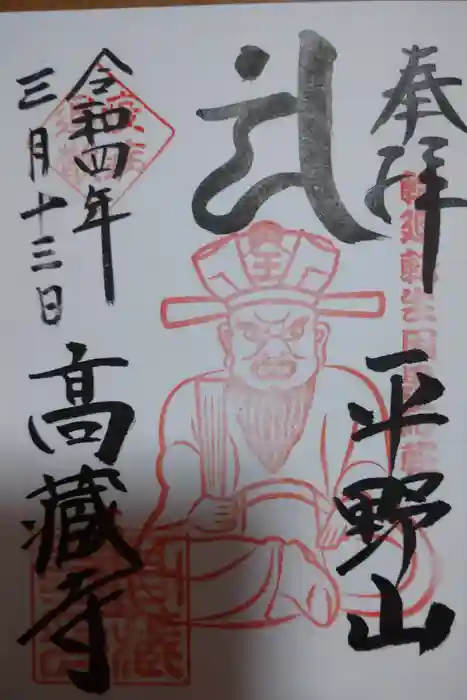 奉拝
平野山
王
令和四年
三月十三日
高蔵寺